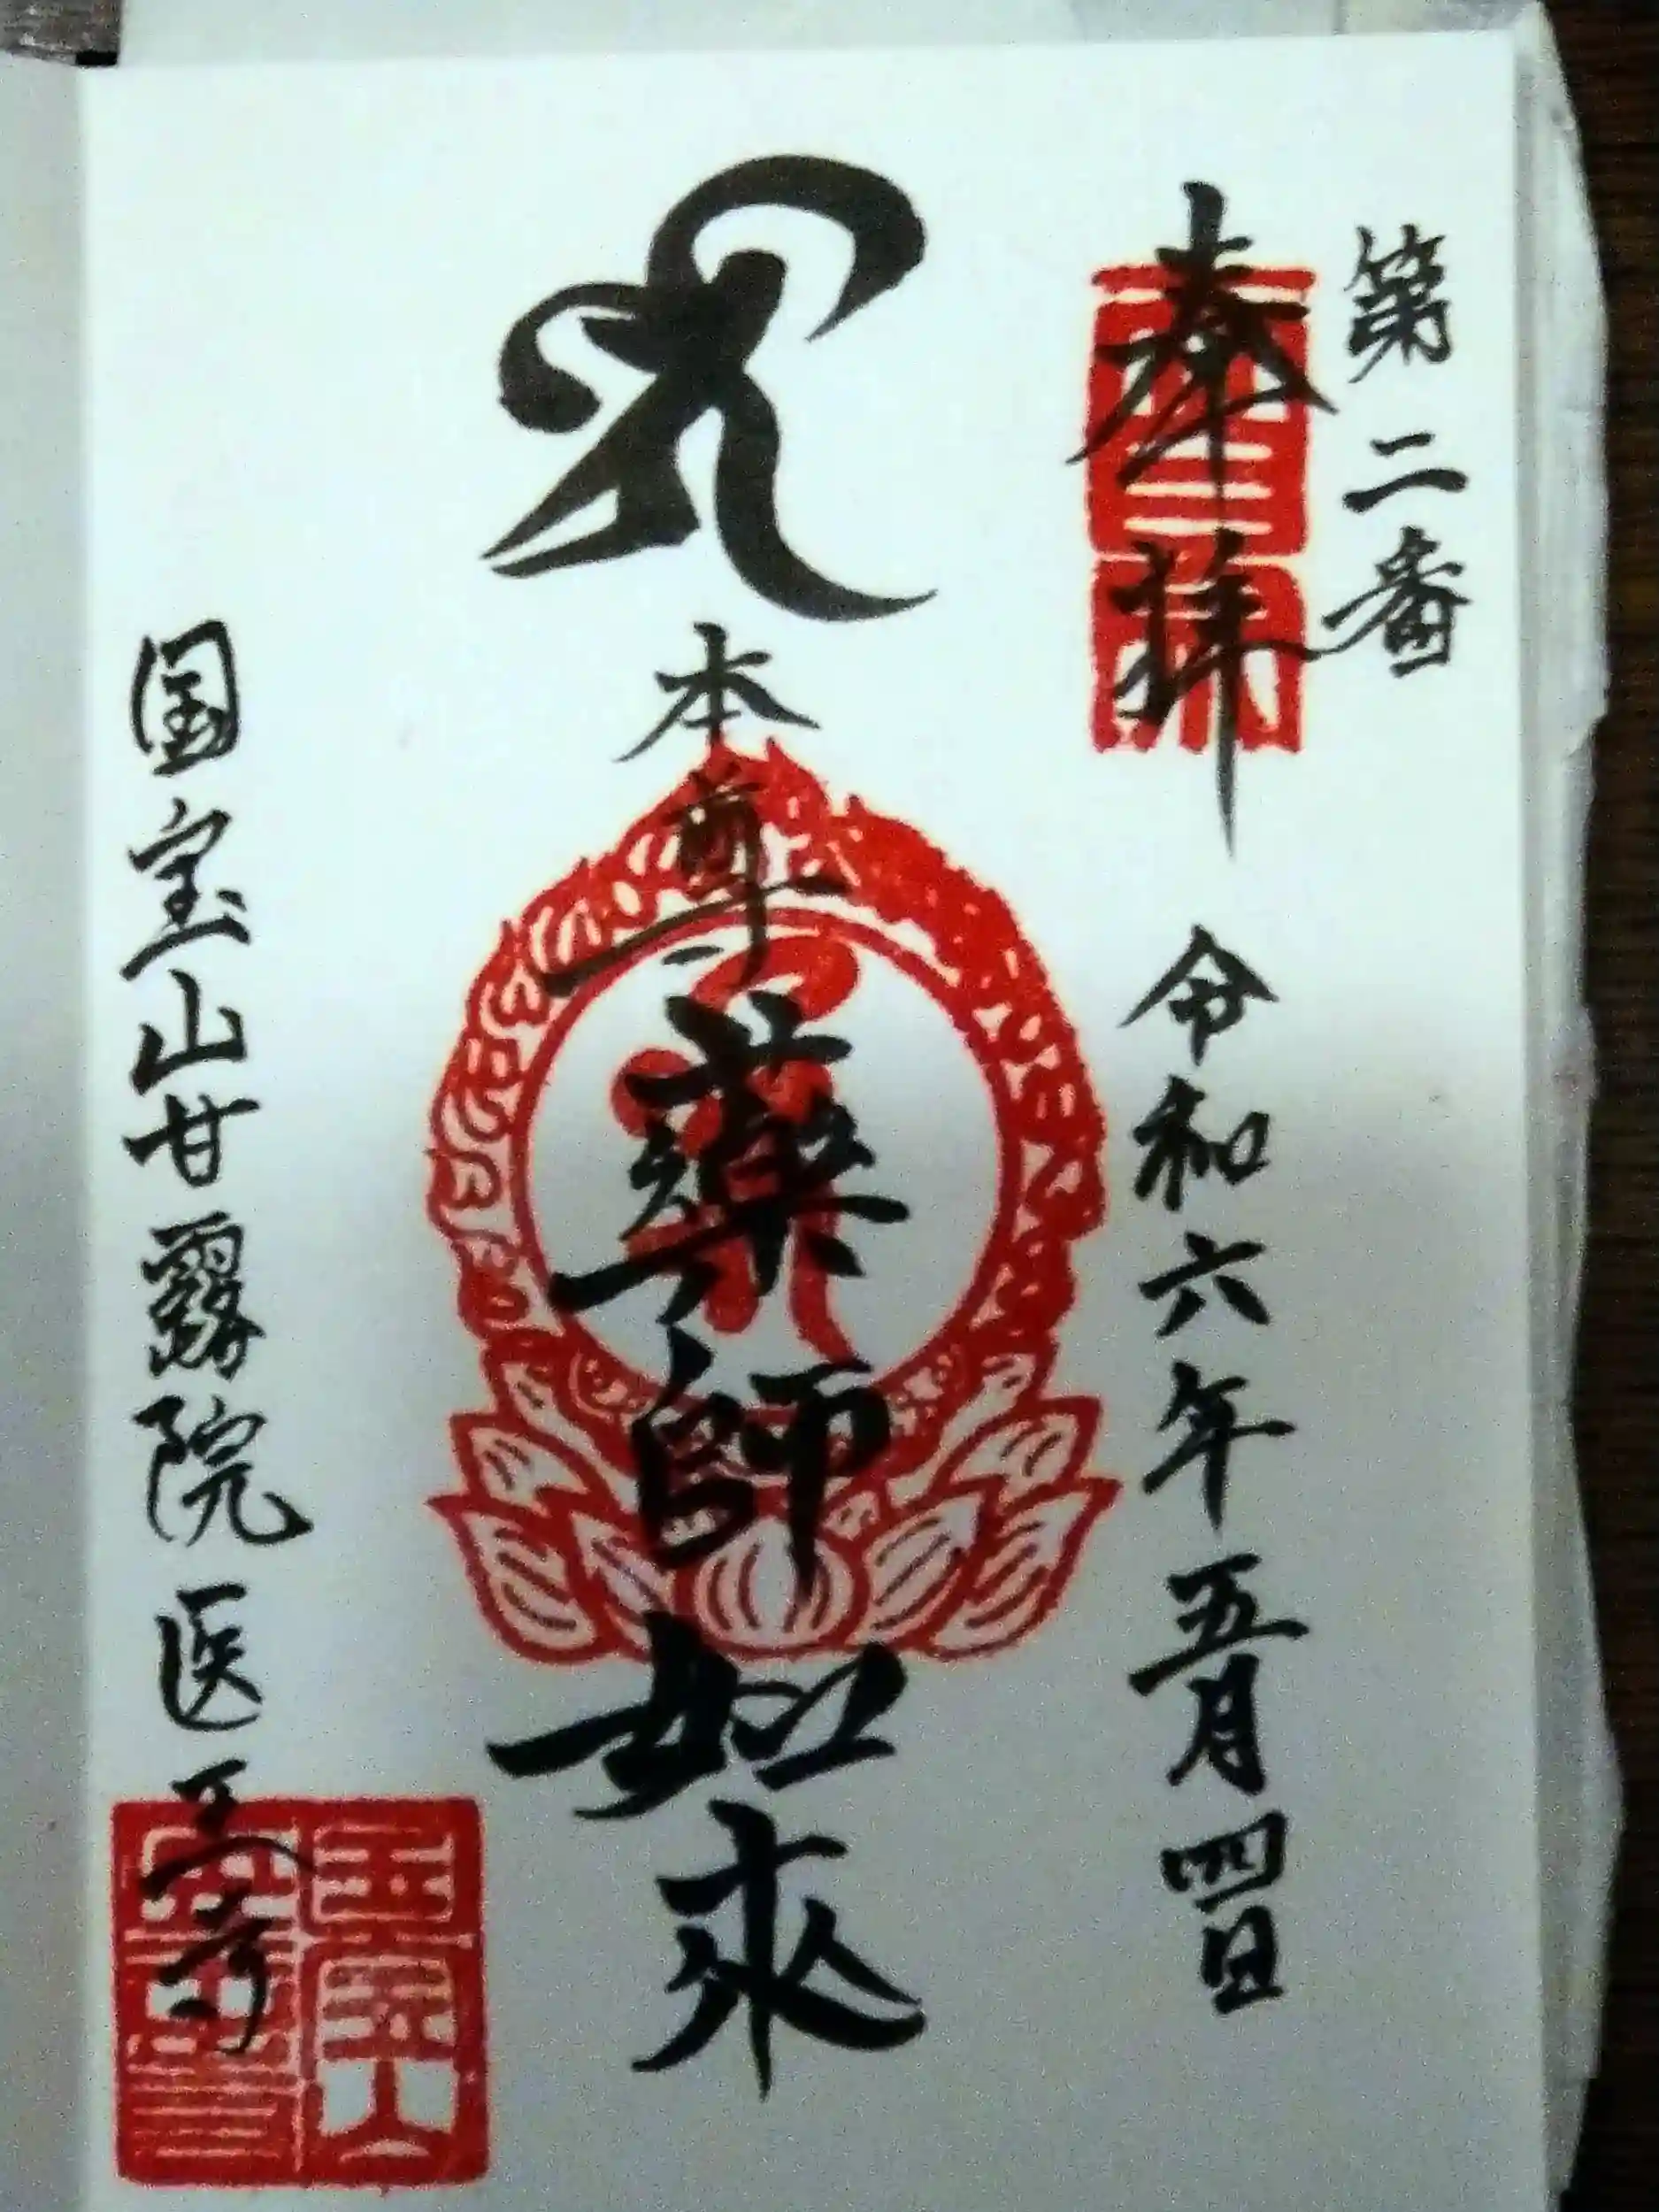 第二番
奉拝 令和六年五月四日
本尊 薬師如来
国宝山甘露院医王寺